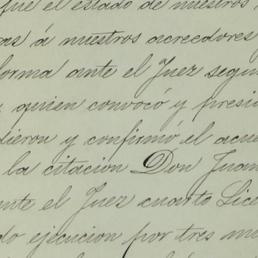 fué el estado de nuestros
as á nuestros acreedores
forma ante el Juez segun
quien convocó y presi
dieron y confirmó el acue
la citacion Don Juan
nte el Juez cuarto Lice
do ejecucion por tres me